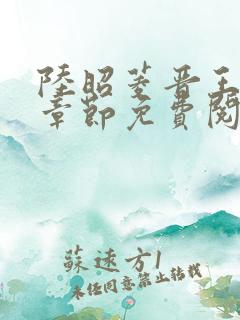 陸昭菱晋王
章節免費閱
蘇遠方1
未經同意禁止轉載